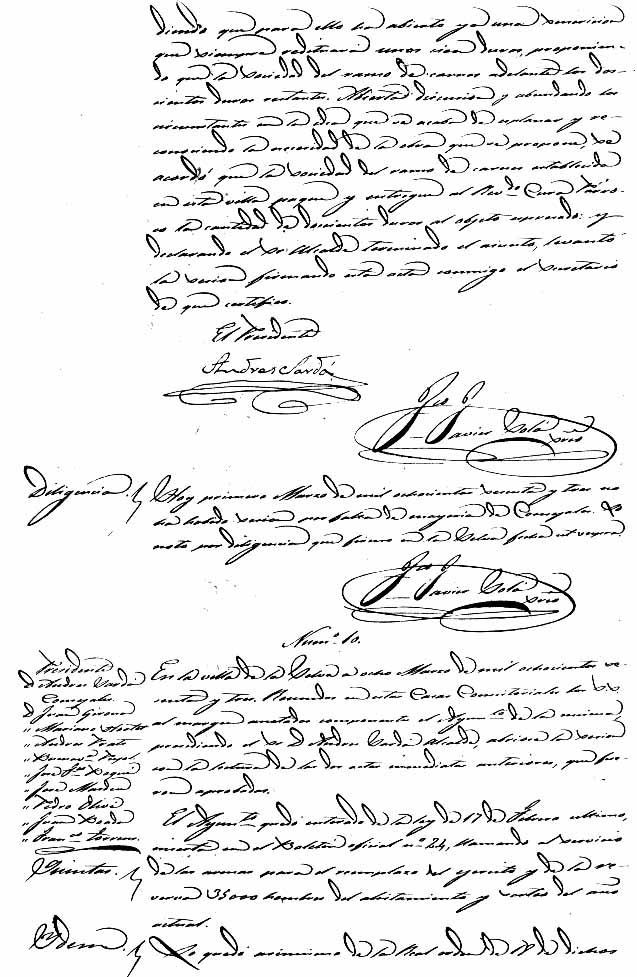 diendo que para ello ha abierto ya una suscricion
que siempre redituará unos cien duros, proponien-
do que la sociedad del ramo de carnes adelante los dos-
cientos duros restantes. Abierta discusion y abundando los
circunstantes en la idea que se acaba de esplanar y re-
conociendo la necesidad de la obra que se propone, se
acordó que la sociedad del ramo de carnes establecida
en esta villa pague y entregue al Revdo. Cura Párro-
co la cantidad de doscientos duros al objeto espresado: y
declarando el Sr. Alcalde terminado el asunto, levantó
la sesion firmando esta acta conmigo el Secretario
de que certifico.
El Presidente
Andres Sardá
Javier Solá
Srio
Diligencia. Hoy primero Marzo de mil ochocientos sesenta y tres no
ha habido sesion por falta de mayoria de Concejales. Lo
noto por diligencia que firmo en la Selva fecha ut supra.
Javier Solá
Srio
Num.º 10.
Presidente
D. Andres Sardá
Concejales
D. Juan Girona
" Mariano
" Andres
" José
" José
" Pedro Oliva
" Juan
" Franco. Torrens
En la villa de la Selva a ocho Marzo de mil ochocientos se-
senta y tres. Reunidos en estas Casas Consistoriales los SS.
al margen anotados componentes el Ayunto. de la misma,
presidiendo el Sr. D. Andres Sardá Alcalde, abrióse la sesion
con la lectura de las dos actas inmediatas anteriores, que fue-
ron aprobadas.
Quintas. El Ayunto. quedó enterado de la ley de 17 de Febrero último,
inserta en el Boletin oficial nº 24, llamando al servicio
de las armas para el reemplazo del ejercito y de la re-
serva 35000 hombres del alistamiento y sorteo del año
actual.
Idem. Lo quedó asimismo de la Real orden de 18 de dichos